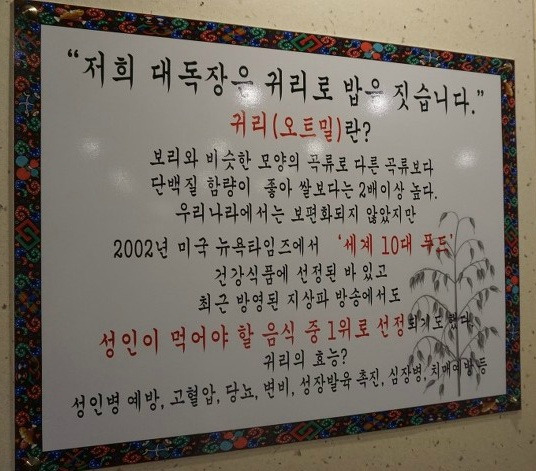 “저희 대독장은 귀리로 밥을 짓습니다.”
귀리(오트밀)란?
보리와 비슷한 모양의 곡류로 다른 곡류보다
단백질 함량이 좋아 쌀보다는 2배이상 높다.
우리나라에서는 보편화되지 않았지만
2002년 미국 뉴욕타임즈에서 ‘세계 10대 푸드’
건강식품에 선정된 바 있고
최근 방영된 지상파 방송에서도
성인이 먹어야 할 음식 중 1위로 선정되기도 했다.
귀리의 효능?
성인병 예방, 고혈압, 당뇨, 변비, 성장발육 촉진, 심장병, 치매예방 등